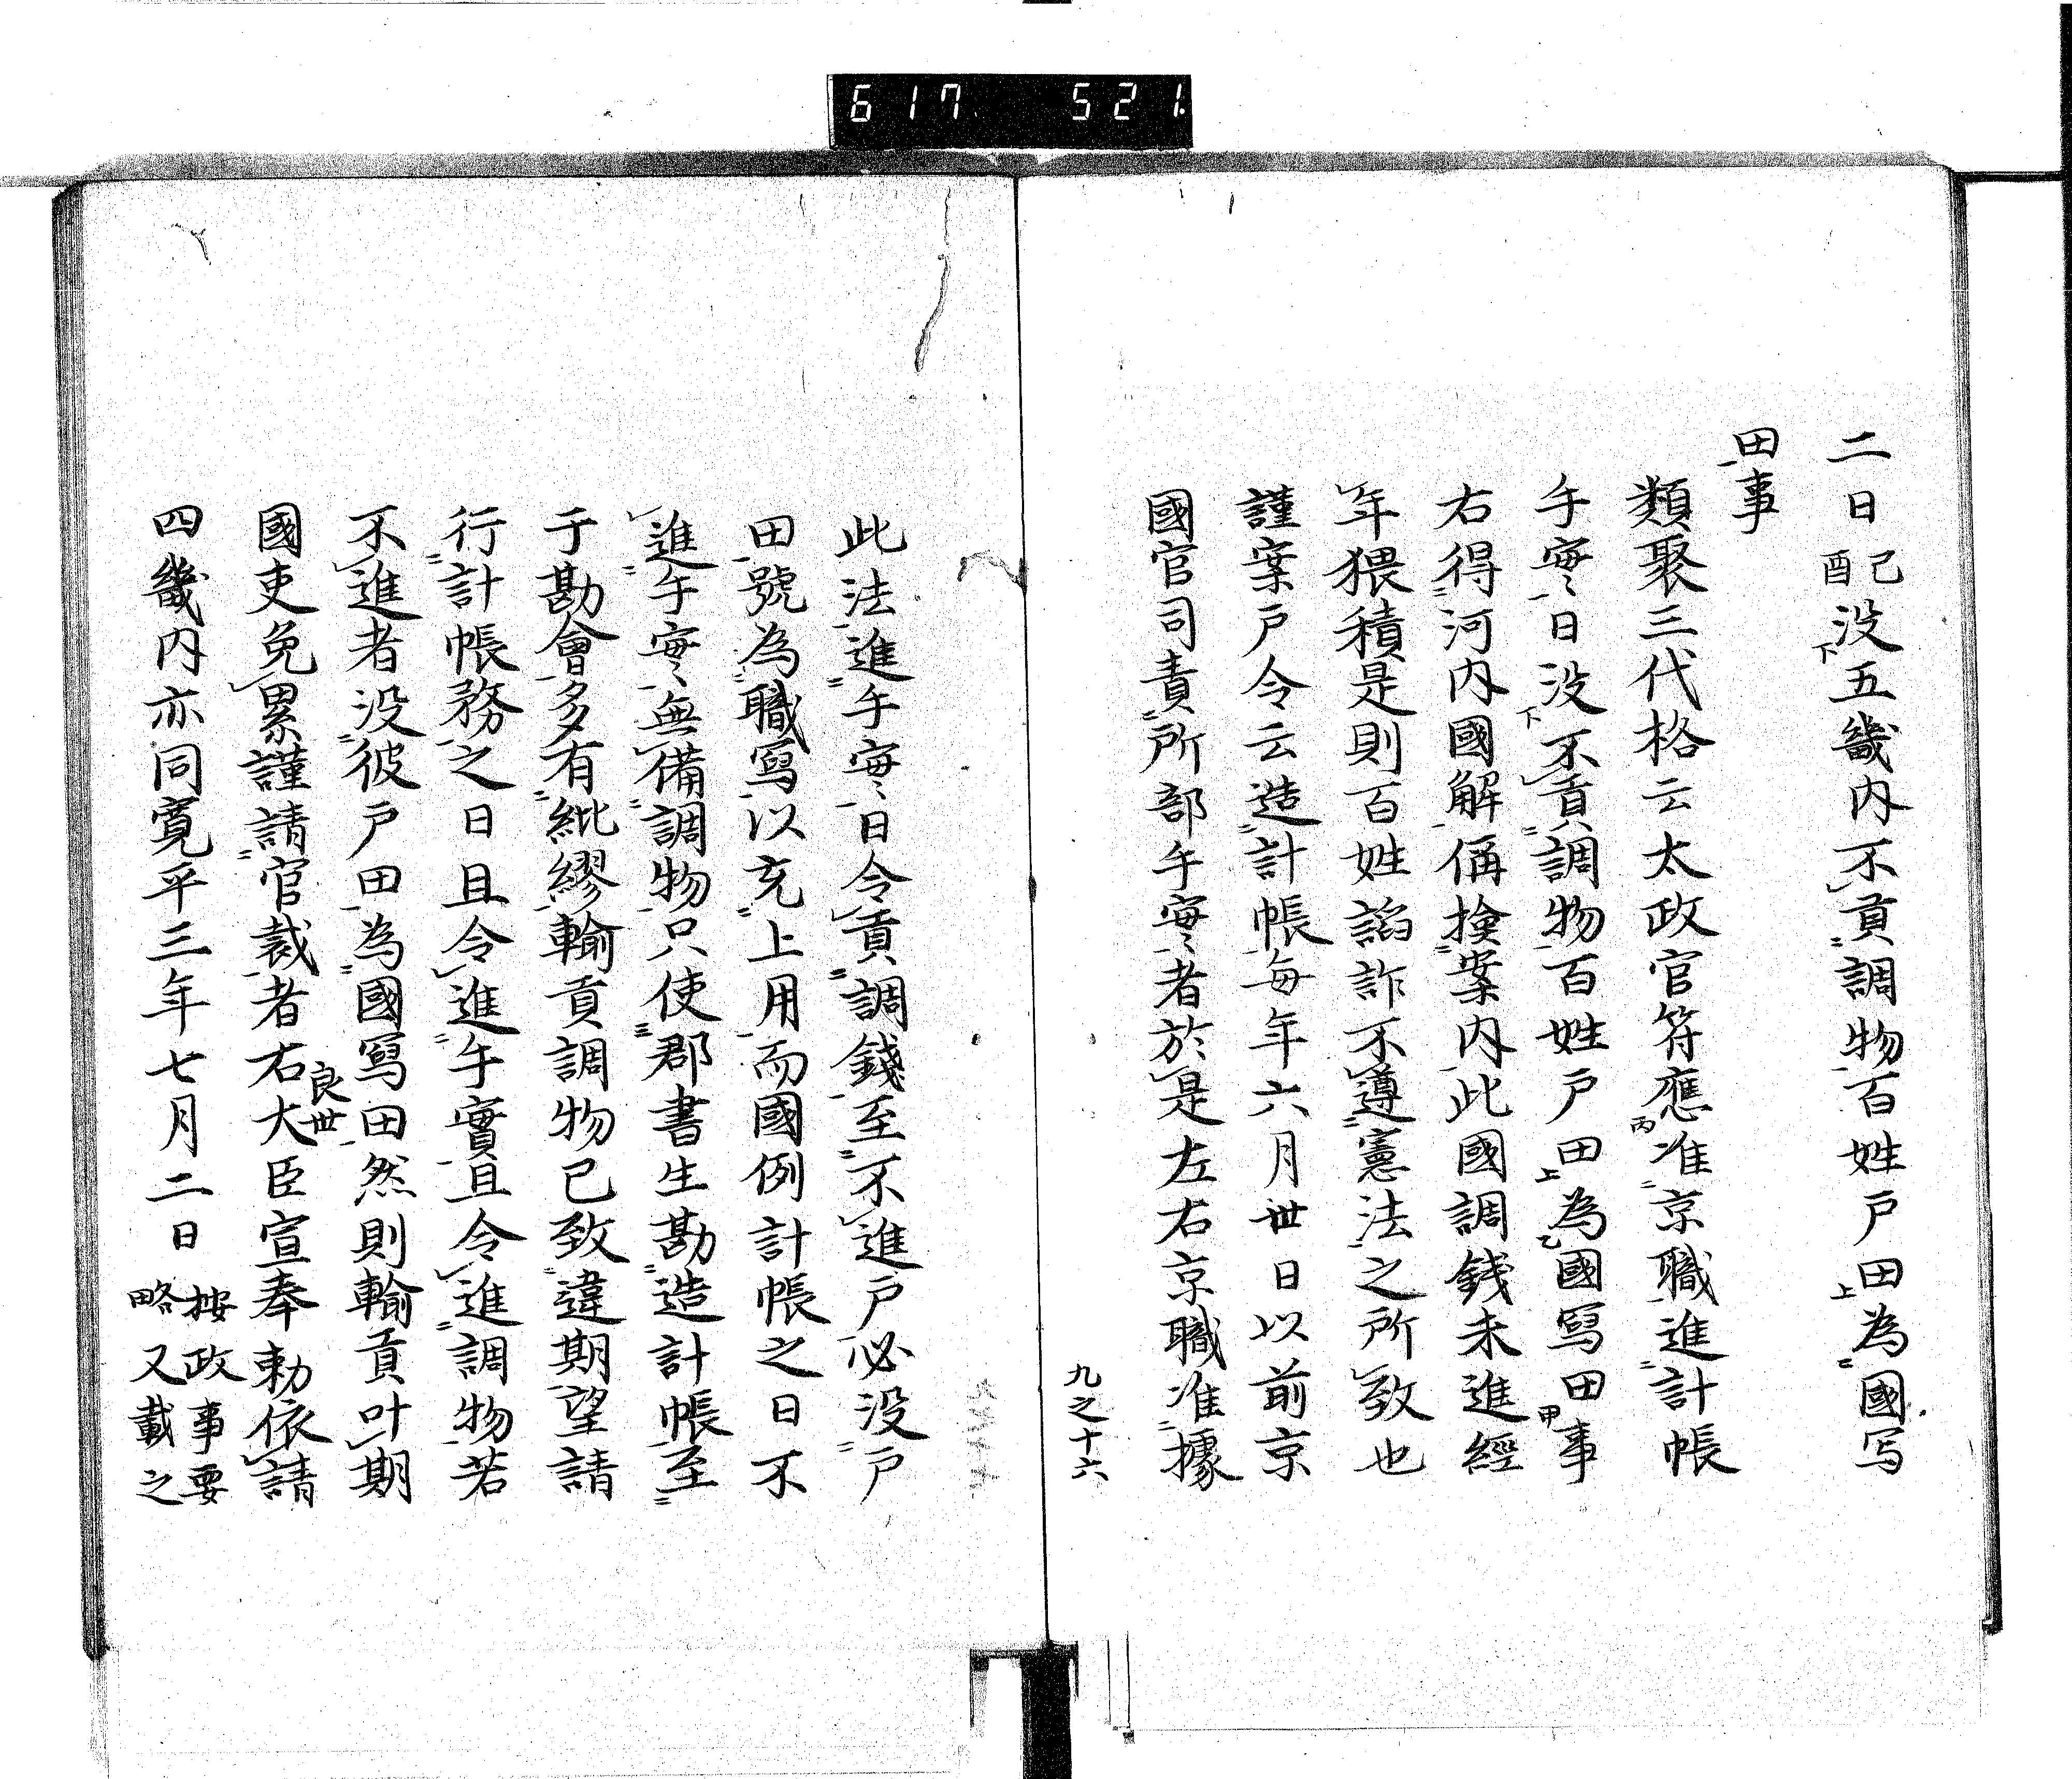 617 521
二日己酉没五畿内不貢調物百姓戸田為國写
田事
類聚三代格云太政官符應准京職進計帳
手実〻日没不貢調物百姓戸田為國寫田事
右得河内國解偁撿案内此國調銭未進經
年猥積是則百姓謟詐不遵憲法之所致也
謹案戸令云造計帳毎年六月卅日以前京
國官司責所部手実〻者於是左右京職准據
九之十六
此法進手実〻日令貢調錢至不進戸必没戸
田號為職寫以充上用而國例計帳之日不
進手実〻無備調物只使郡書生勘造計帳至
于勘會多有紕繆輸貢調物已致違期望請
行計帳務之日且令進手實且令進調物若
不進者没彼戸田為國寫田然則輸貢叶期
國吏免累謹請官裁者右大臣良世宣奉勅依請
四畿内亦同寛平三年七月二日按政事要略又載之